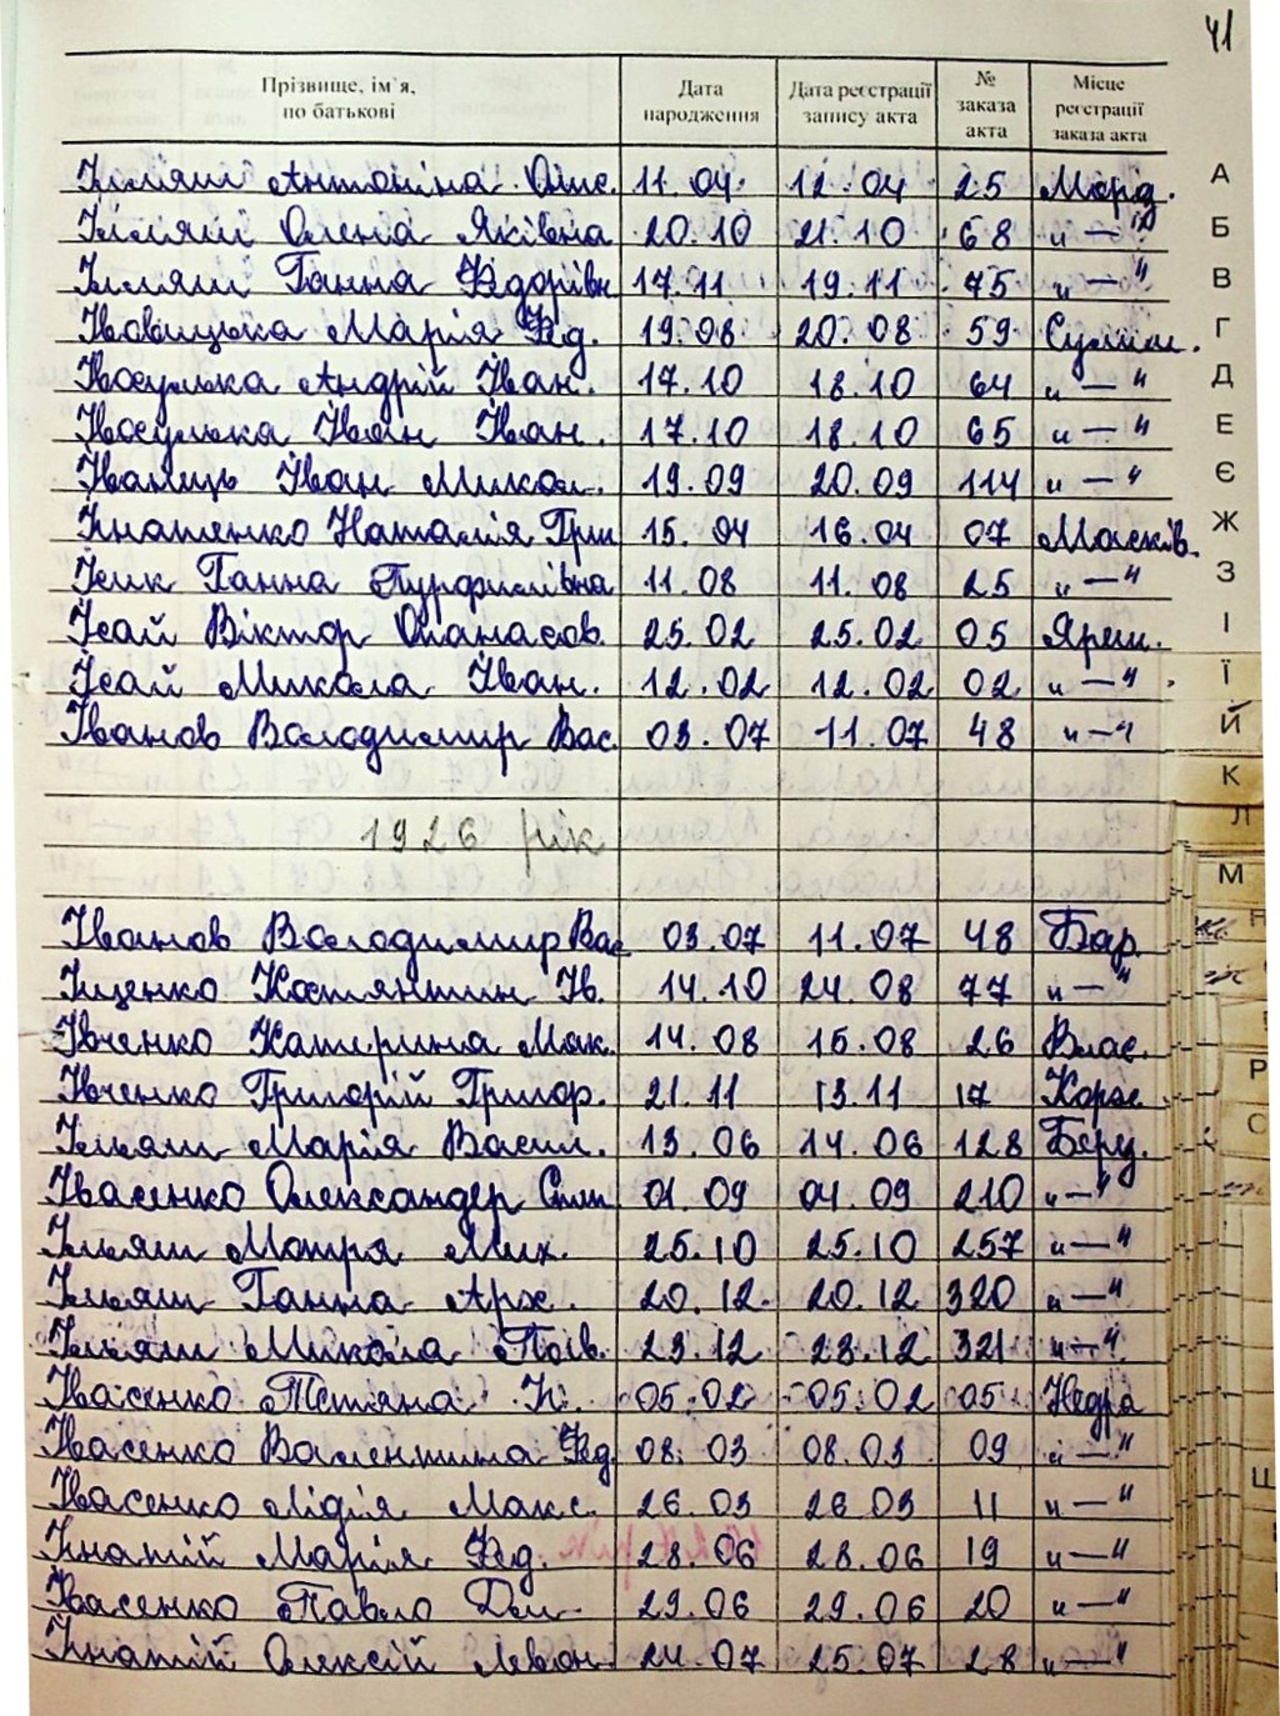 41
Прізвище, ім`я, по батькові Дата народження Дата реєстрації запису акта № заказа акта Місце реєстрації заказа акта
Ілляш Антоніна Опис. 11.04. 12.04 25 Морд.
Ілляш Олена Яківна 20.10 21.10 68 "—"
Ілляш Ганна Федорівн 17.11 19.11 75 "—"
Івовицька Марія Фед. 19.08 20.08 59 Сулим.
Івасулька Андрій Іван. 17.10 18.10 64 "—"
Івасулька Іван Іван. 17.10 18.10 65 "—"
Іванець Іван Микол. 19.09 20.09 114 "—"
Ігнатенко Наталія Гри 15.04 16.04 07 Масків.
Ісик Ганна Пурфилівна 11.08 11.08 25 "—"
Ісай Віктор Опанасов. 25.02 25.02 05 Яреш.
Ісай Микола Іван. 12.02 12.02 02 "—"
Іванов Володимир Вас. 03.07 11.07 48 "—"
1926 рік
Іванов Володимир Вас 03.07 11.07 48 Бар.
Іщенко Костянтин Ів. 14.10 24.08 77 "—"
Івченко Катерина Мак. 14.08 15.08 26 Влас.
Івченко Григорій Григор. 21.11 13.11 17 Корж.
Ільяш Марія Васил. 13.06 14.06 128 Берез.
Івасенко Олександер Степ 01.09 04.09 210 "—"
Ільяш Мотря Мих. 25.10 25.10 257 "—"
Ільяш Ганна Арх. 20.12. 20.12 320 "—"
Ільяш Микола Павл. 23.12 28.12 321 "—"
Івасенко Тетяна 05.02 05.02 05 Недра
Івасенко Валентина Фед. 08.03 08.03 09 "—"
Івасенко Лідія Макс. 26.03 26.03 11 "—"
Ігнатій Марія Фед. 28.06 28.06 19 "—"
Івасенко Павло Дм. 29.06 29.06 20 "—"
Ігнатій Олексій Левон. 24.07 25.07 28 "—"
А
Б
В
Г
Д
Е
Є
Ж
З
І
Ї
Й
К
Л
М
Н
Р
С
Щ